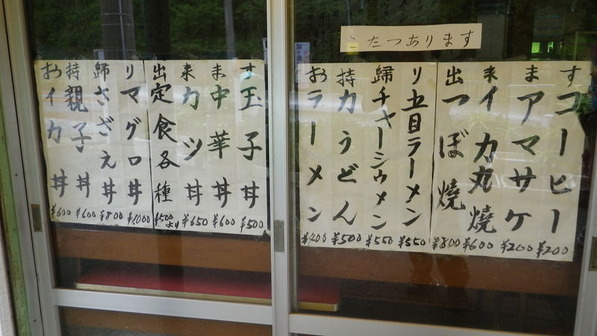 こたつあります
お持帰り出来ます
コーヒー ¥200
アマサケ ¥200
イカ丸焼 ¥600
つぼ焼 ¥800
五目ラーメン ¥550
チャーシウメン ¥550
力うどん ¥500
ラーメン ¥400
お持帰り出来ます
玉子丼 ¥500
中華丼 ¥600
カツ丼 ¥650
定食各種 ¥500より
マグロ丼 ¥1000
さざえ丼 ¥800
親子丼 ¥600
イカ丼 ¥600